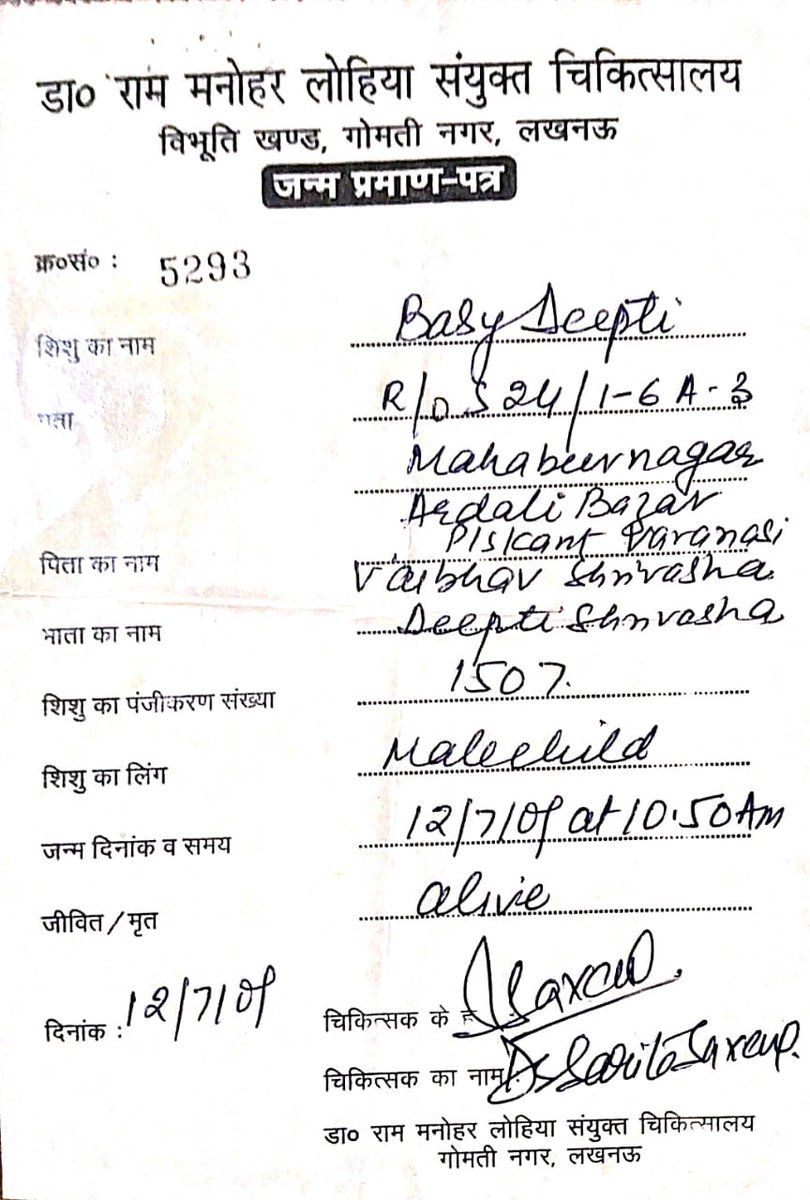 डा० राम मनोहर लोहिया संयुक्त चिकित्सालय
विभूति खण्ड, गोमती नगर, लखनऊ
जन्म प्रमाण-पत्र
क्र०सं० : 5293
शिशु का नाम Baby Deepti
पता R/O S 24/1-6 A-3
Mahabeernagar
Ardali Bazar
P/S Kant Varanasi
पिता का नाम Vaibhav Shrivastva
माता का नाम Deepti Shrivastva
शिशु का पंजीकरण संख्या 1507.
शिशु का लिंग Male child
जन्म दिनांक व समय 12/7/09 at 10.50 Am
जीवित/मृत alive
दिनांक : 12/7/09
चिकित्सक के ह० Saxena
चिकित्सक का नाम Dr Sarita Saxena
डा० राम मनोहर लोहिया संयुक्त चिकित्सालय
गोमती नगर, लखनऊ